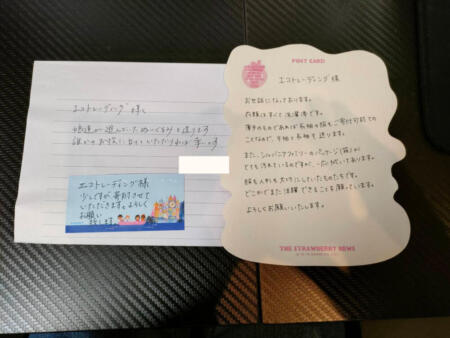 エコトレーディング様へ
娘達が遊んでいたぬいぐるみを送ります
誰かのお役に立てていただければ幸いです
エコトレーディング様
少しですが寄付させて
いただきます。よろしく
お願い
致します
POST CARD
エコトレーディング様
お世話になっております。
衣類はすべて洗濯済です。
薄手のものであれば長袖の服もご寄付可能との
ことなので、半袖と長袖を送ります。
また、シルバニアファミリーのパッケージ(箱)が
とても汚れているのですが、一応付いております。
服も人形も大切にしていたものたちです。
どこかでまた活躍できることを願っています。
よろしくお願いいたします。
THE STRAWBERRY NEWS